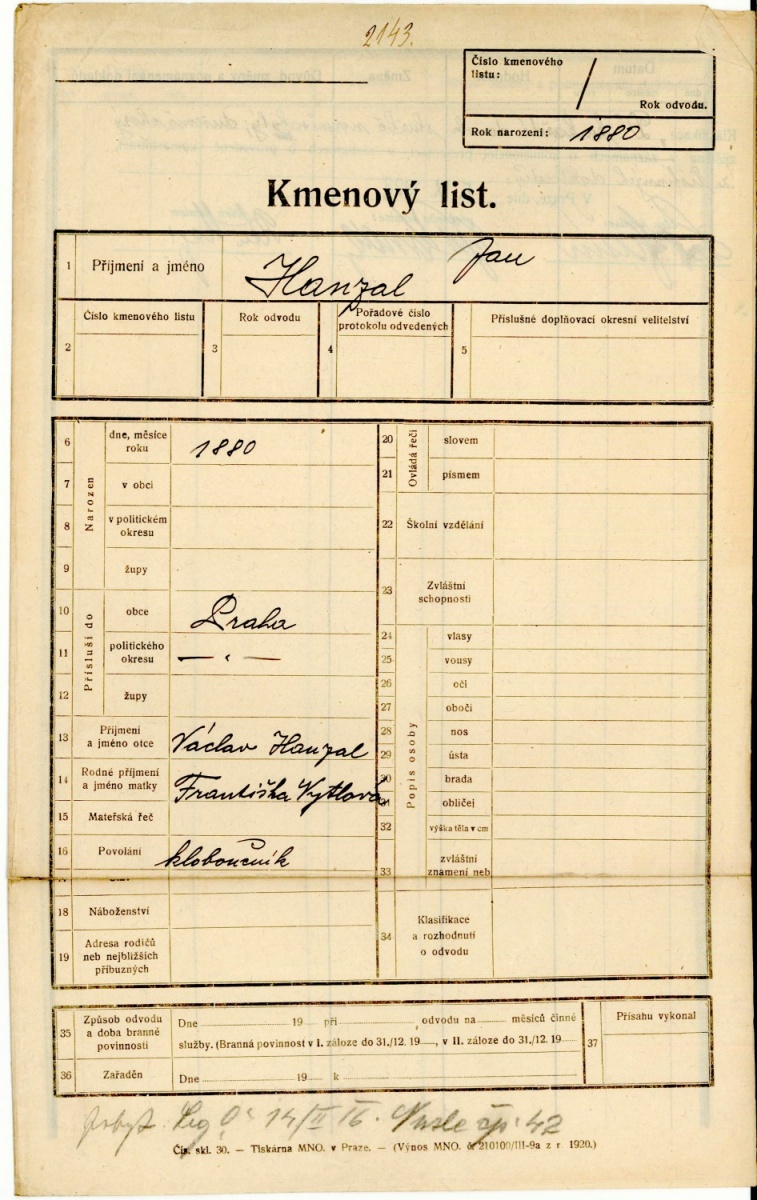 2143.
Číslo kmenového
listu: /
Rok odvodu.
Rok narození: 1880
Kmenový list.
1 Příjmení a jméno Hanzal Jan
2 Číslo kmenového listu
3 Rok odvodu
4 Pořadové číslo
protokolu odvedených
5 Příslušné doplňovací okresní velitelství
Narozen
6 dne, měsíce
roku 1880
7 v obci
8 v politickém
okresu
9 župy
Přísluší do
10 obce Praha
11 politického
okresu — „ —
12 župy
13 Příjmení
a jméno otce Václav Hanzal
14 Rodné příjmení
a jméno matky Františka Vytlová
15 Mateřská řeč
16 Povolání kloboučník
18 Náboženství
19 Adresa rodičů
neb nejbližších
příbuzných
Ovládá řeči
20 slovem
21 písmem
22 Školní vzdělání
23 Zvláštní
schopnosti
Popis osoby
24 vlasy
25 vousy
26 oči
27 obočí
28 nos
29 ústa
30 brada
31 obličej
32 výška těla v cm
33 zvláštní
znamení neb
34 Klasifikace
a rozhodnutí
o odvodu
35 Způsob odvodu
a doba branné
povinnosti
Dne 19 při odvodu na měsíců činné
služby. (Branná povinnost v I. záloze do 31./12. 19 , v II. záloze do 31./12. 19
36 Zařaděn Dne 19 k
37 Přísahu vykonal
pobyt. 14/II 16. Nusle čp. 42
Čís. skl. 30. — Tiskárna MNO. v Praze. — (Výnos MNO. č. 210100/III-9a z r. 1920.)